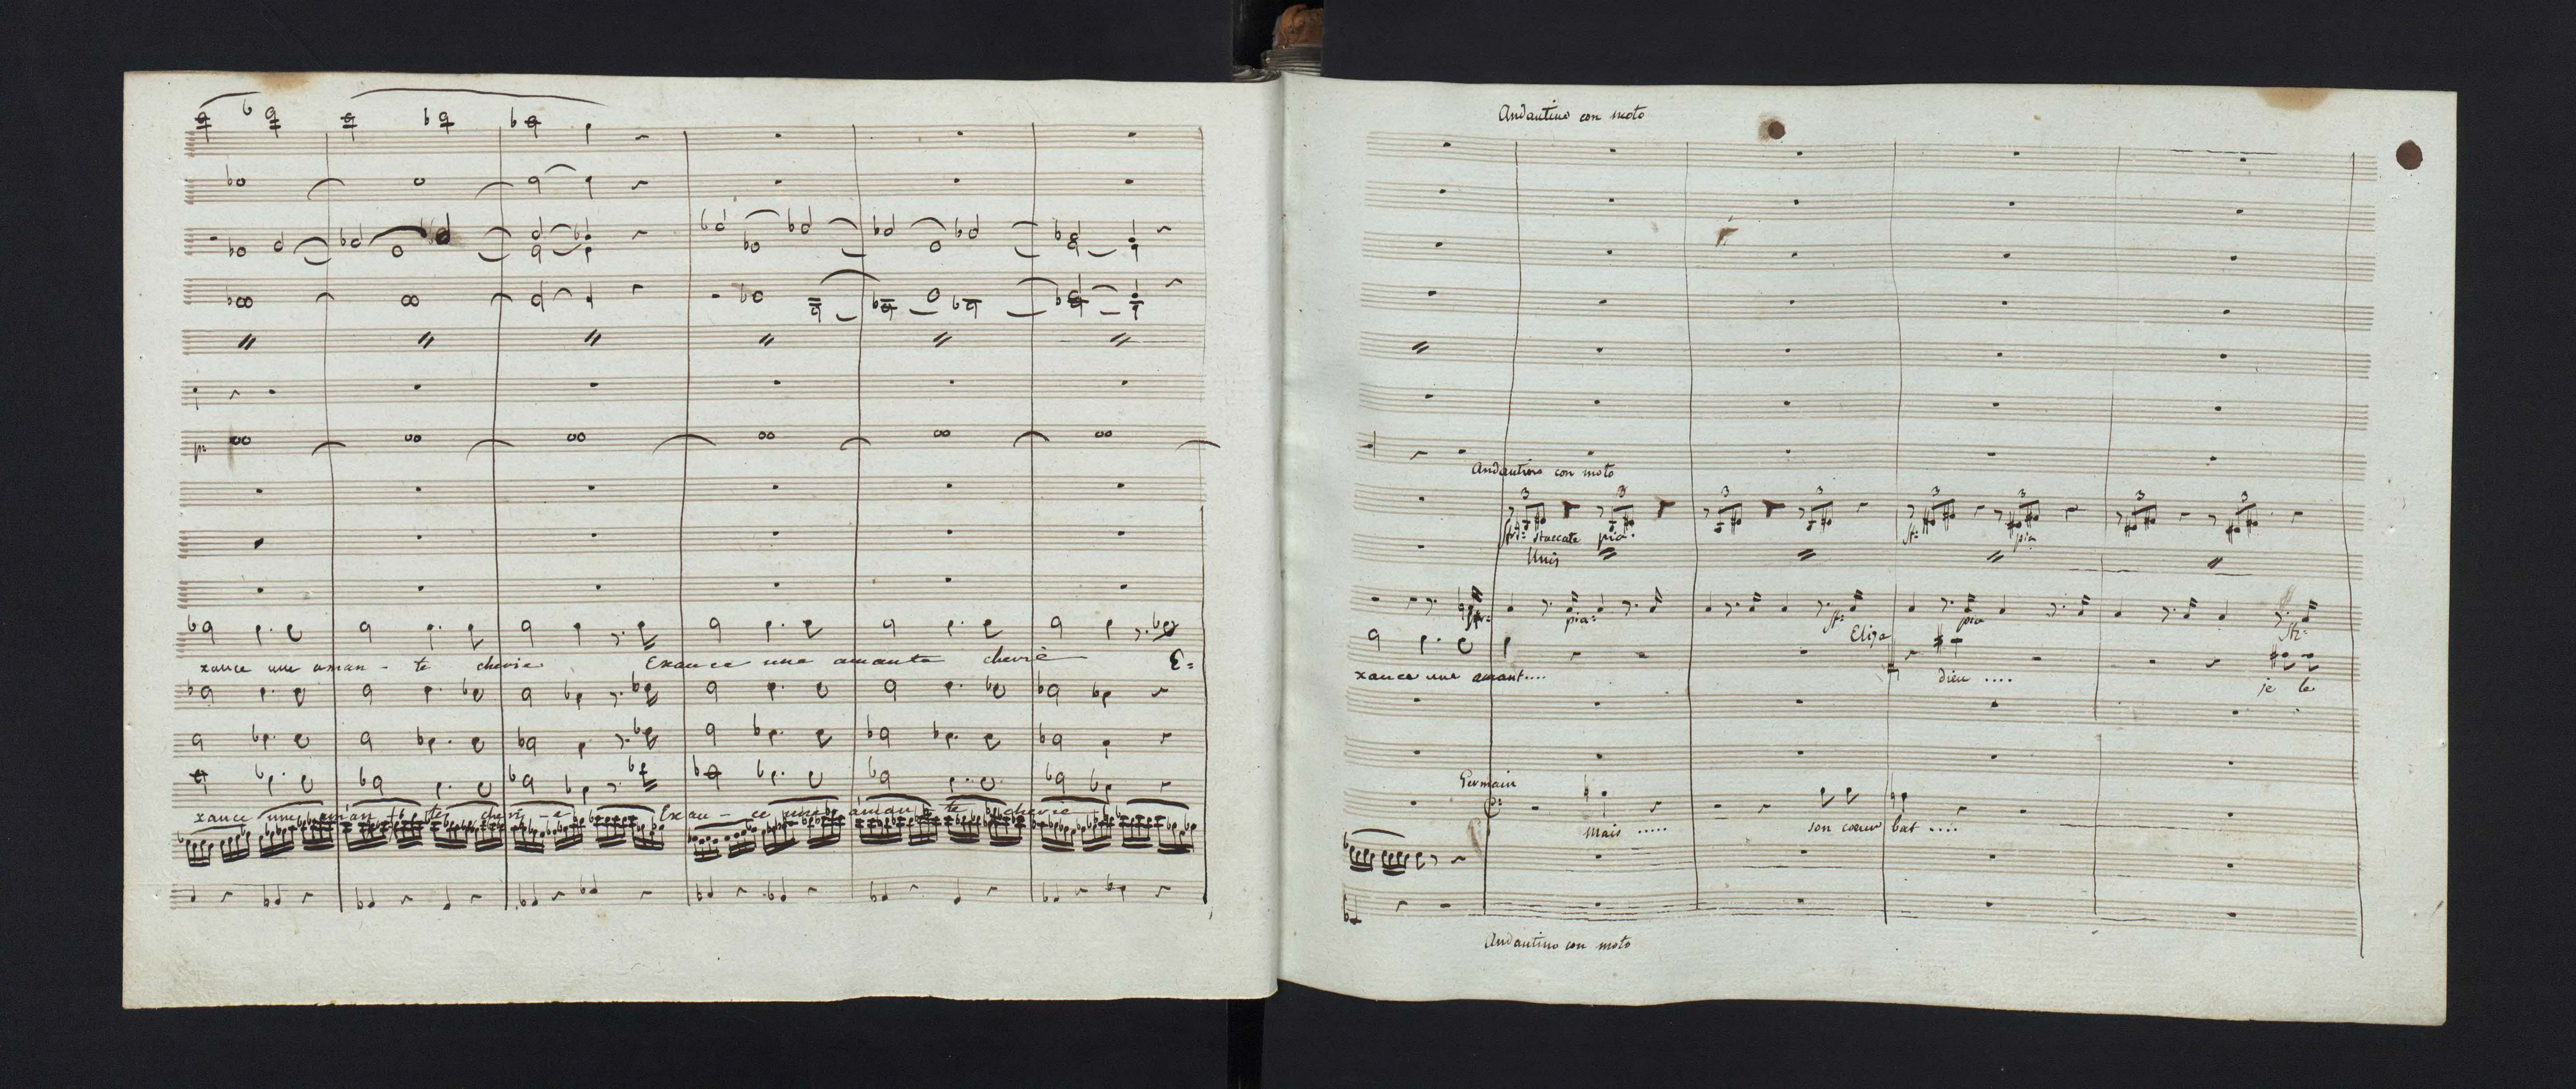 p:
xance une aman - te cherie Exance une amante cherie E=
xance une aman te cheri - e Exau - ce une aman te cherie
Andantino con moto
Andantino con moto
3 3 3 3 3 3 3 3
staccate pia.
pia
Unis
pia: pia
Eliza
xance une amant.... dieu .... je le
Germain
Mais ..... son coeur bat ....
Andantino con moto